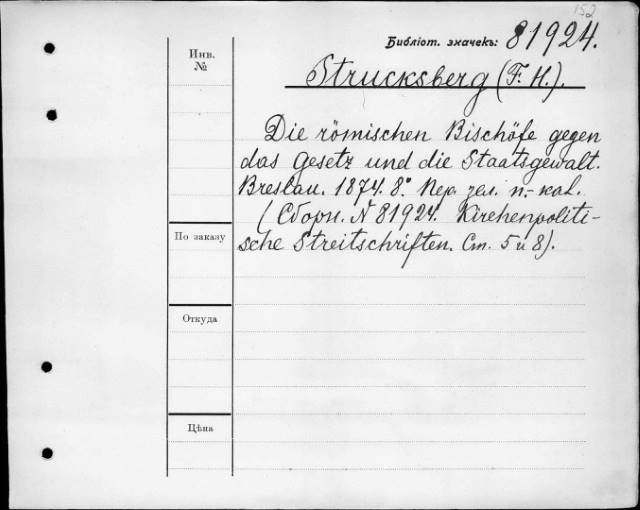 152
Библіот. значекъ: 81924.
Инв.
№
Strucksberg (F. H.).
Die römischen Bischöfe gegen
das Gesetz und die Staatsgewalt.
Breslau. 1874. 8.° Пер. зел. п.-кол.
(Сборн. N 81924. Kirchenpoliti-
sche Streitschriften. Ст. 5 и 8).
По заказу
Откуда
Цѣна